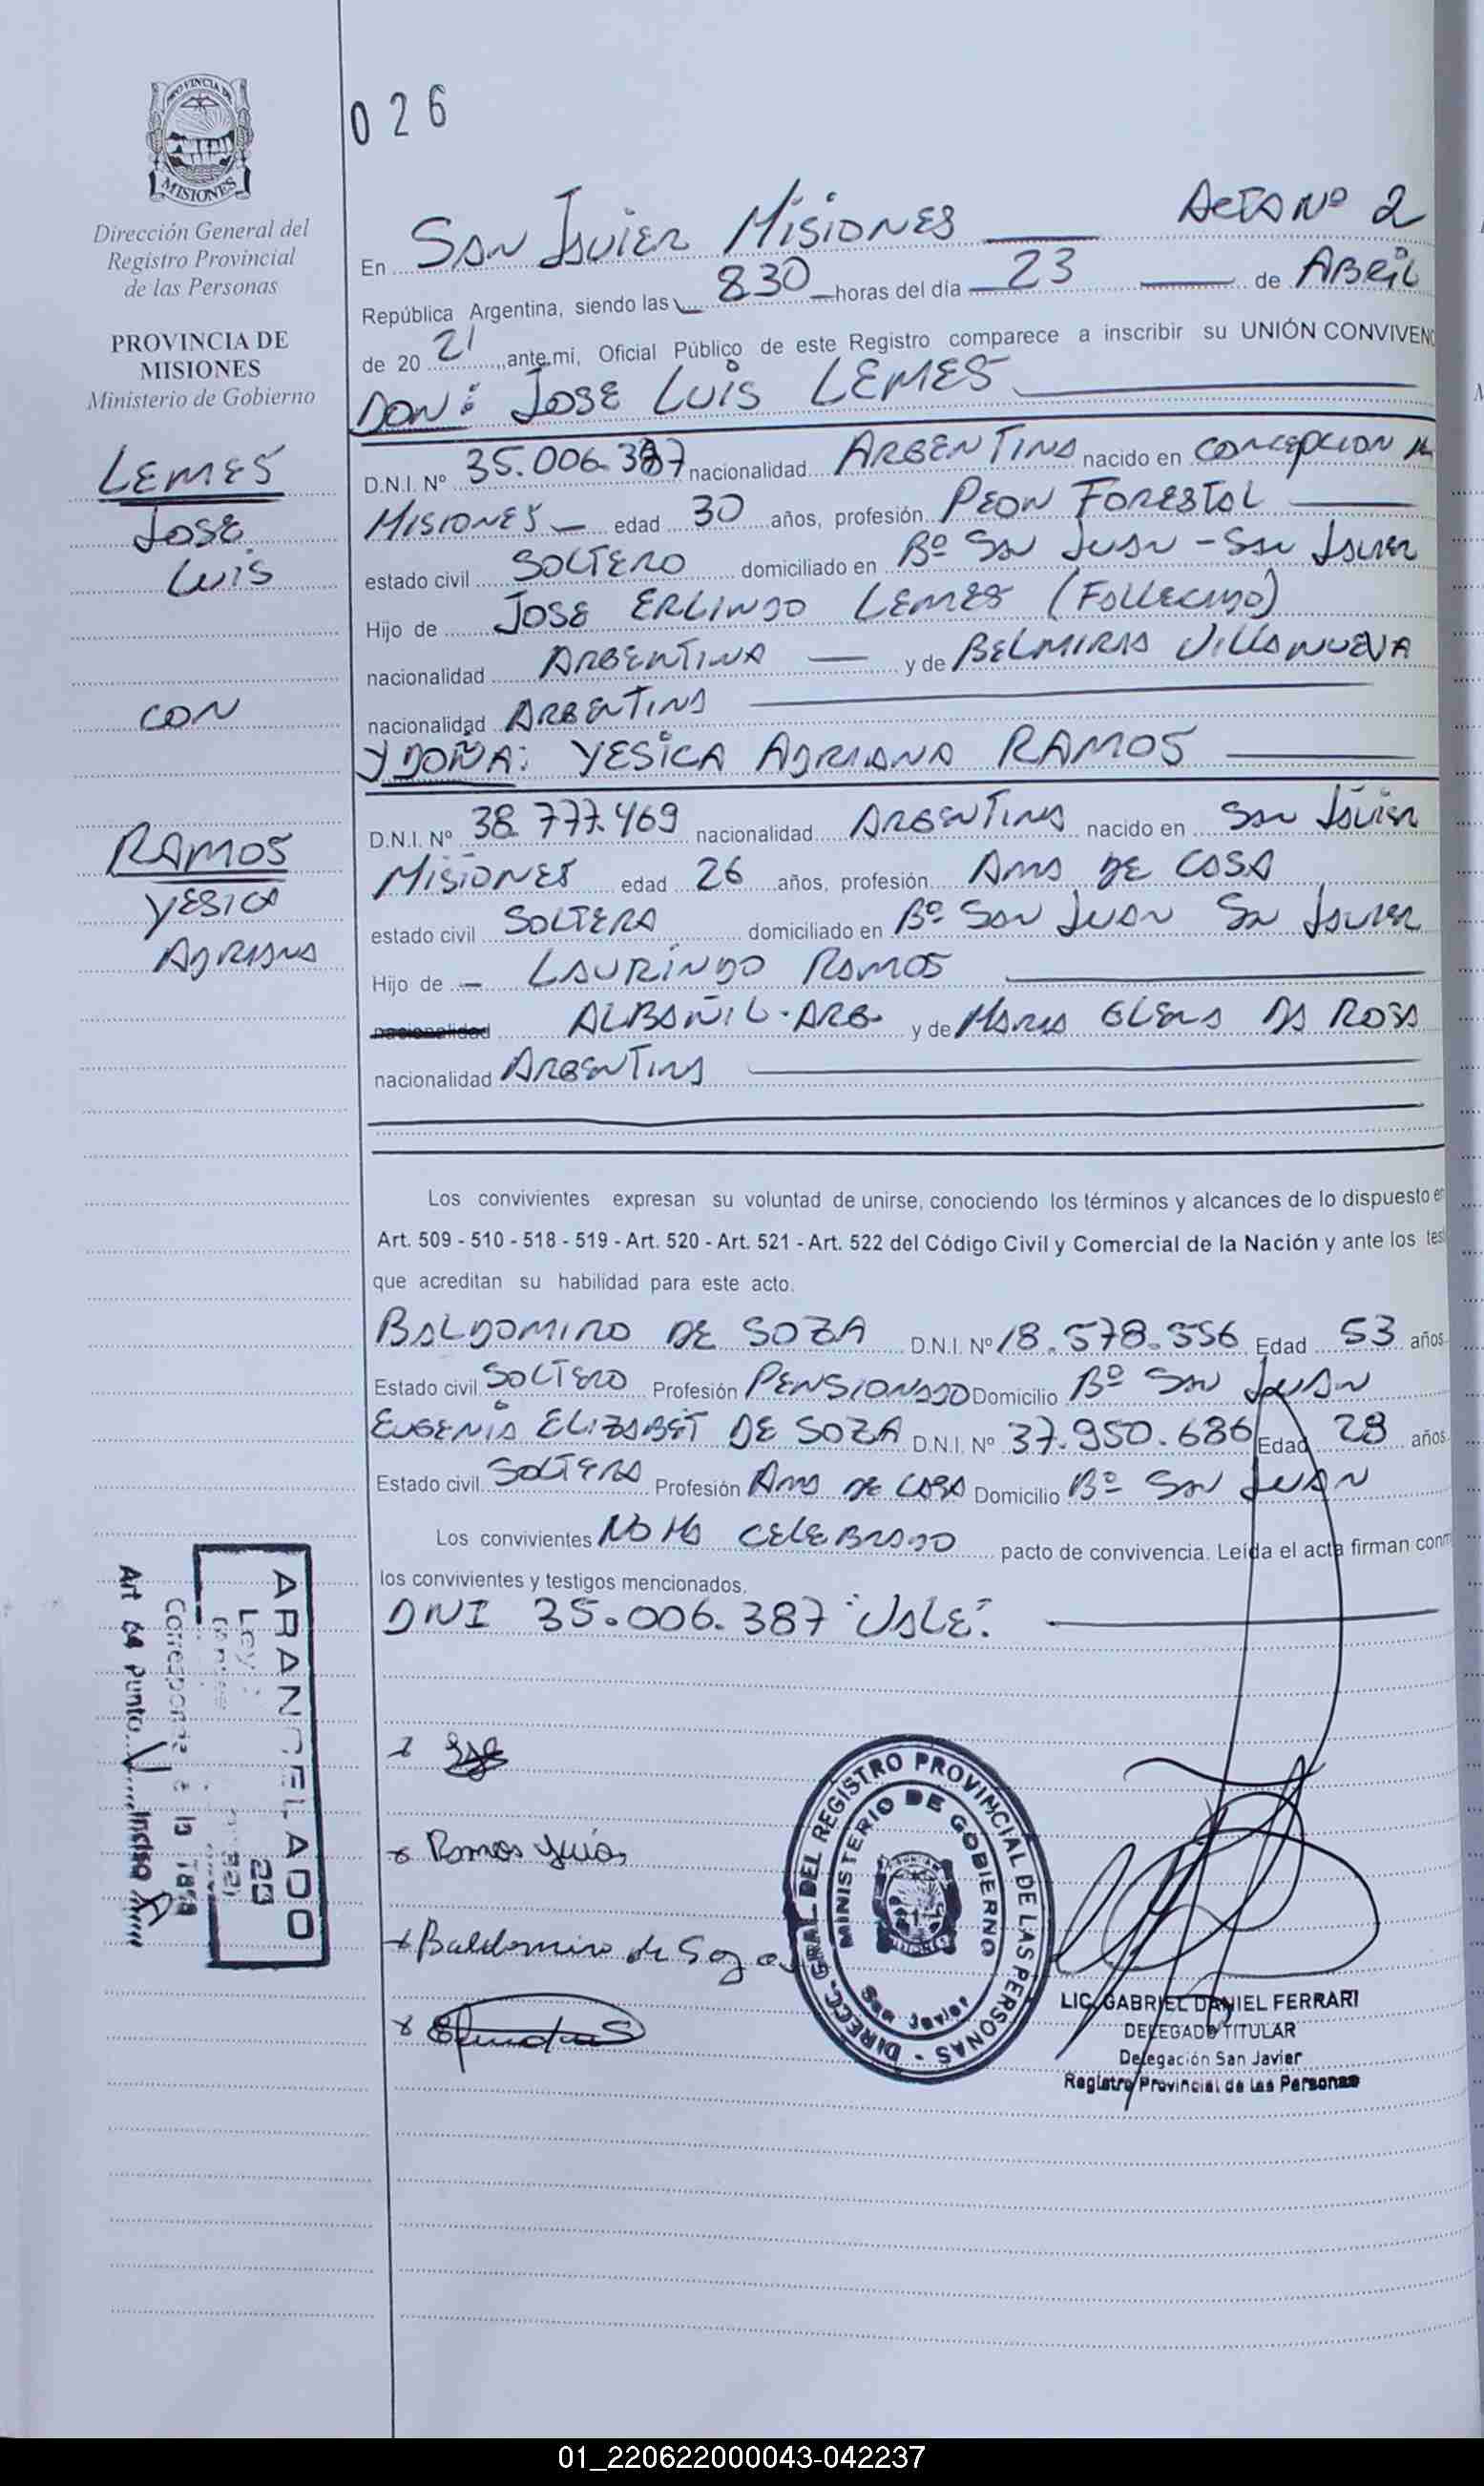 PROVINCIA DE
MISIONES
Dirección General del
Registro Provincial
de las Personas
PROVINCIA DE
MISIONES
Ministerio de Gobierno
LEMES
JOSE
LUIS
CON
RAMOS
YESICA
ADRIANA
026
ACTA Nº 2
En SAN JAVIER MISIONES
República Argentina, siendo las 830 horas del día 23 de ABRIL
de 20 21 ,ante mi, Oficial Público de este Registro comparece a inscribir su UNIÓN CONVIVENC
DON: JOSE LUIS LEMES
D.N.I. Nº 35.006.387 nacionalidad ARGENTINA nacido en CONCEPCION
MISIONES edad 30 años, profesión PEON FORESTAL
estado civil SOLTERO domiciliado en Bº SAN JUAN - SAN JAVIER
Hijo de JOSE ERLINDO LEMES (FALLECIDO)
nacionalidad ARGENTINA y de BELMIRA VILLANUEVA
nacionalidad ARGENTINA
Y DOÑA: YESICA ADRIANA RAMOS
D.N.I. Nº 38.777.469 nacionalidad ARGENTINA nacido en SAN JAVIER
MISIONES edad 26 años, profesión AMA DE CASA
estado civil SOLTERA domiciliado en Bº SAN JUAN SAN JAVIER
Hijo de LAURINDO RAMOS
nacionalidad ALBAÑIL - ARG. y de MARIA ELENA DA ROSA
nacionalidad ARGENTINA
Los convivientes expresan su voluntad de unirse, conociendo los términos y alcances de lo dispuesto en
Art. 509 - 510 - 518 - 519 - Art. 520 - Art. 521 - Art. 522 del Código Civil y Comercial de la Nación y ante los tes
que acreditan su habilidad para este acto.
BALDOMIRO DE SOZA D.N.I. Nº 18.578.556 Edad 53 años
Estado civil SOLTERO Profesión PENSIONADO Domicilio Bº SAN JUAN
EUGENIA ELIZABET DE SOZA D.N.I. Nº 37.950.686 Edad 28 años
Estado civil SOLTERA Profesión AMA DE CASA Domicilio Bº SAN JUAN
Los convivientes NO HA CELEBRADO pacto de convivencia. Leída el acta firman conm
los convivientes y testigos mencionados.
DNI 35.006.387 "VALE"
ARANCELADO
Ley
Corresponde a la Tasa
Art 64 punto 1 Inciso A
Ramos
Baldomiro de Soza
DIRECC. GRAL. DEL REGISTRO PROVINCIAL DE LAS PERSONAS
MINISTERIO DE GOBIERNO
San Javier
LIC. GABRIEL DANIEL FERRARI
DELEGADO TITULAR
Delegación San Javier
Registro Provincial de las Personas
01_220622000043-042237